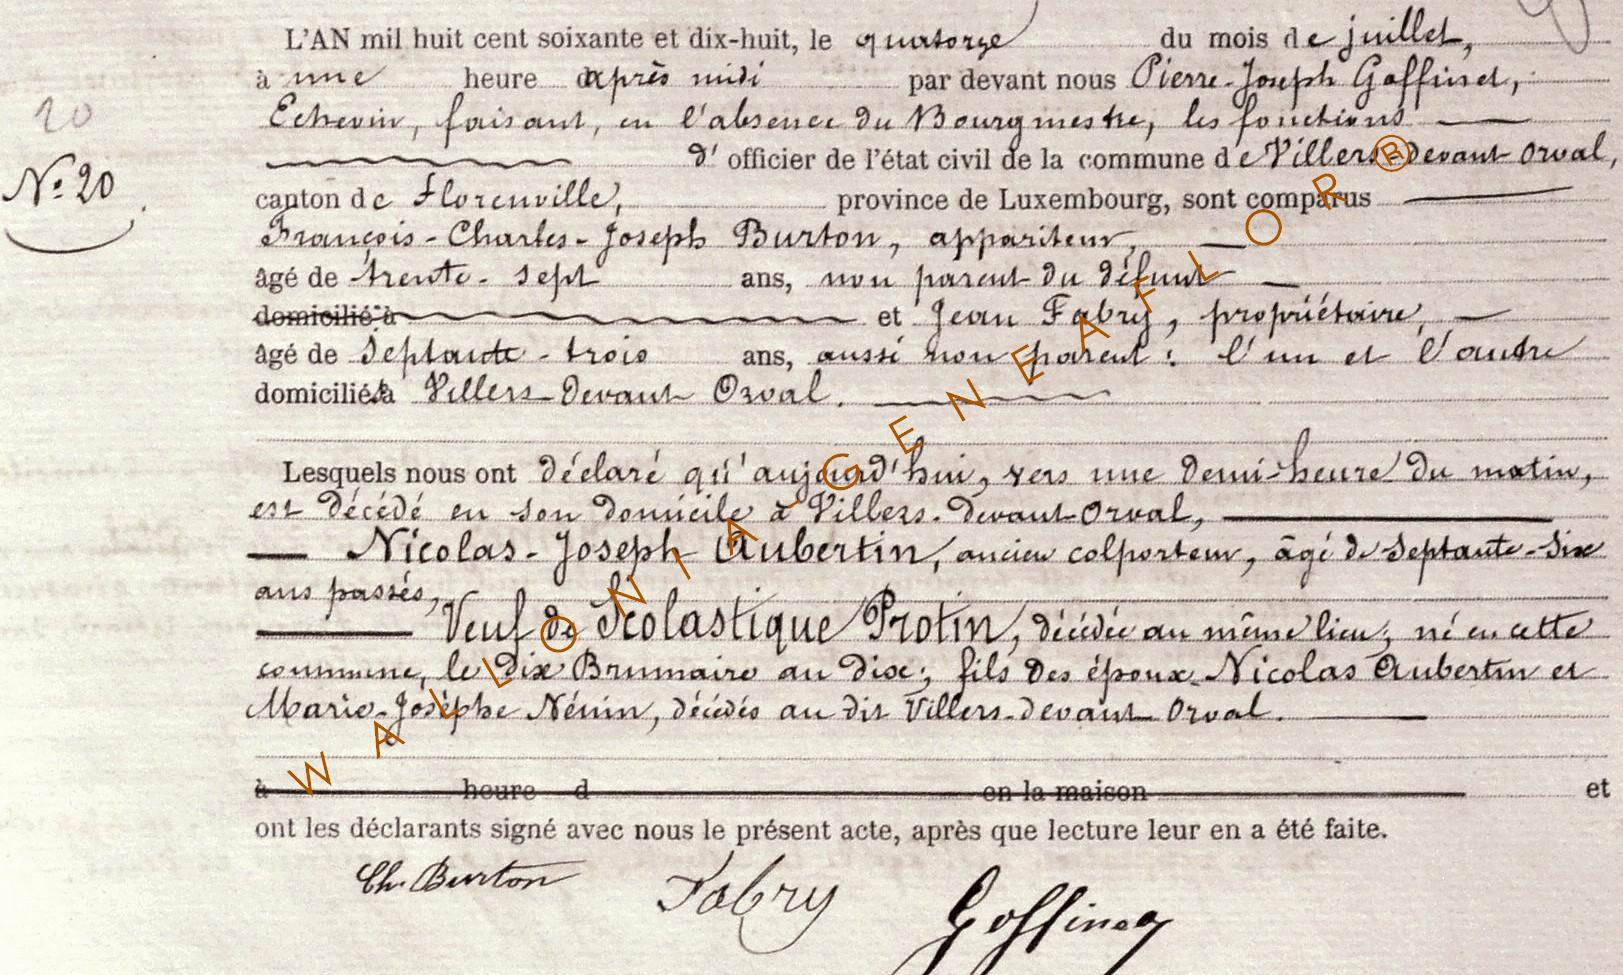 L'AN mil huit cent soixante et dix-huit, le quatorze du mois de juillet,
à une heure d'après midi par devant nous Pierre-Joseph Goffinet,
20
Echevin, faisant, en l'absence du Bourgmestre, les fonctions
d'officier de l'état civil de la commune de Villers-Devant-Orval,
N° 20
canton de Florenville, province de Luxembourg, sont comparus
François-Charles-Joseph Burton, appariteur,
âgé de trente-sept ans, non parent du défunt
domicilié à et Jean Fabry, propriétaire,
âgé de Septante-trois ans, aussi non parent: l'un et l'autre
domiciliés à Villers-Devant-Orval.
Lesquels nous ont déclaré qu'aujourd'hui, vers une demi-heure du matin,
est décédé en son domicile à Villers-devant-Orval,
Nicolas-Joseph Aubertin, ancien colporteur, âgé de Septante-Six
ans passés,
Veuf de Scolastique Protin, décédée au même lieu; né en cette
commune, le dix Brumaire an dix; fils des époux Nicolas Aubertin et
Marie-Josèphe Nénin, décédés au dit Villers-devant-Orval.
à heure d en la maison et
ont les déclarants signé avec nous le présent acte, après que lecture leur en a été faite.
Ch. Burton Fabry Goffinet
WALLONIA-GENEAFLOR®